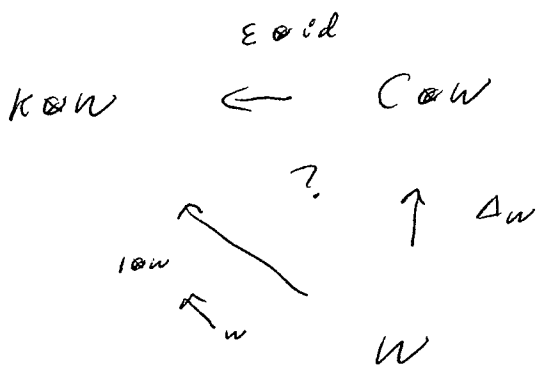 ε⊗id
K⊗W ← C⊗W
?
Δw
1⊗w
w
W